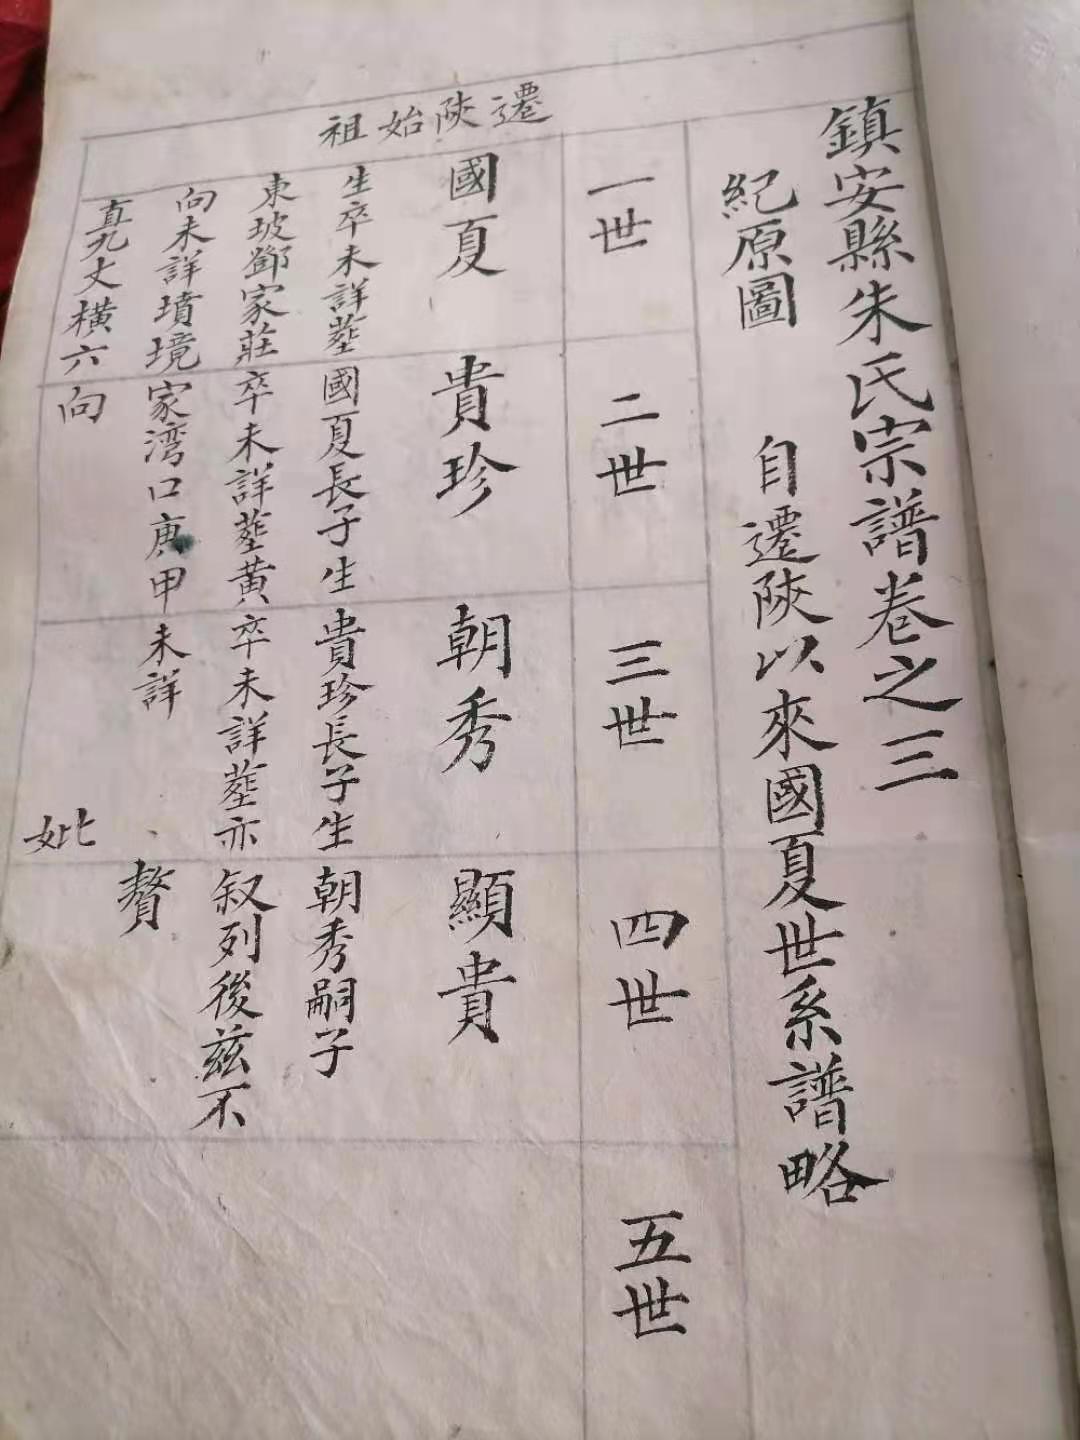 鎮安縣朱氏宗譜卷之三
紀原圖
自遷陝以來國夏世系譜略
遷陝始祖
一世
國夏
生卒未詳塟
東坡鄧家莊
向未詳墳境
直九丈橫六
二世
貴珍
國夏長子生
卒未詳塟黄
家湾口庚甲
向
三世
朝秀
貴珍長子生
卒未詳塟亦
未詳
妣
四世
顯貴
朝秀嗣子
叙列後兹不
贅
五世